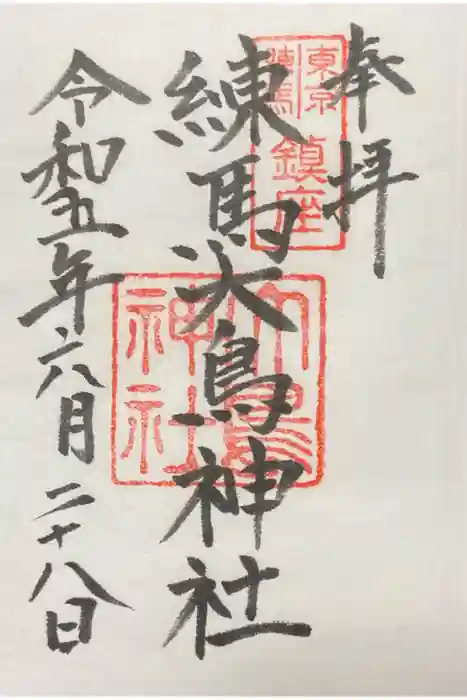 奉拝
東京
練馬
鎮座
練馬大鳥神社
大鳥
神社
令和五年六月二十八日